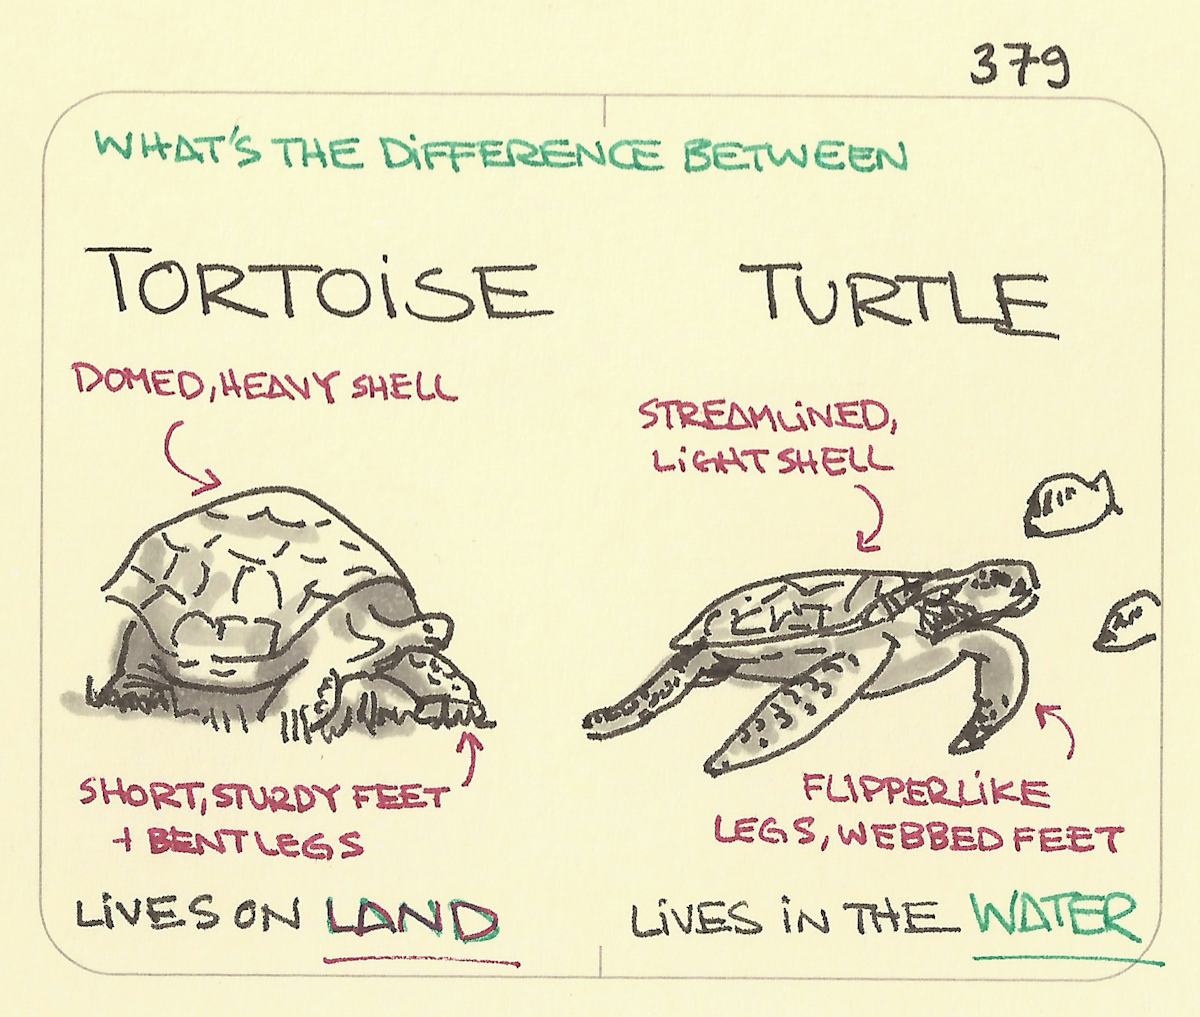 379
WHAT'S THE DiFFERENCE BETWEEN
TORTOiSE
DOMED, HEAVY SHELL
SHORT, STURDY FEET
+ BENT LEGS
LiVES ON LAND
TURTLE
STREAMLiNED,
LiGHT SHELL
FLIPPERLiKE
LEGS, WEBBED FEET
LiVES iN THE WATER